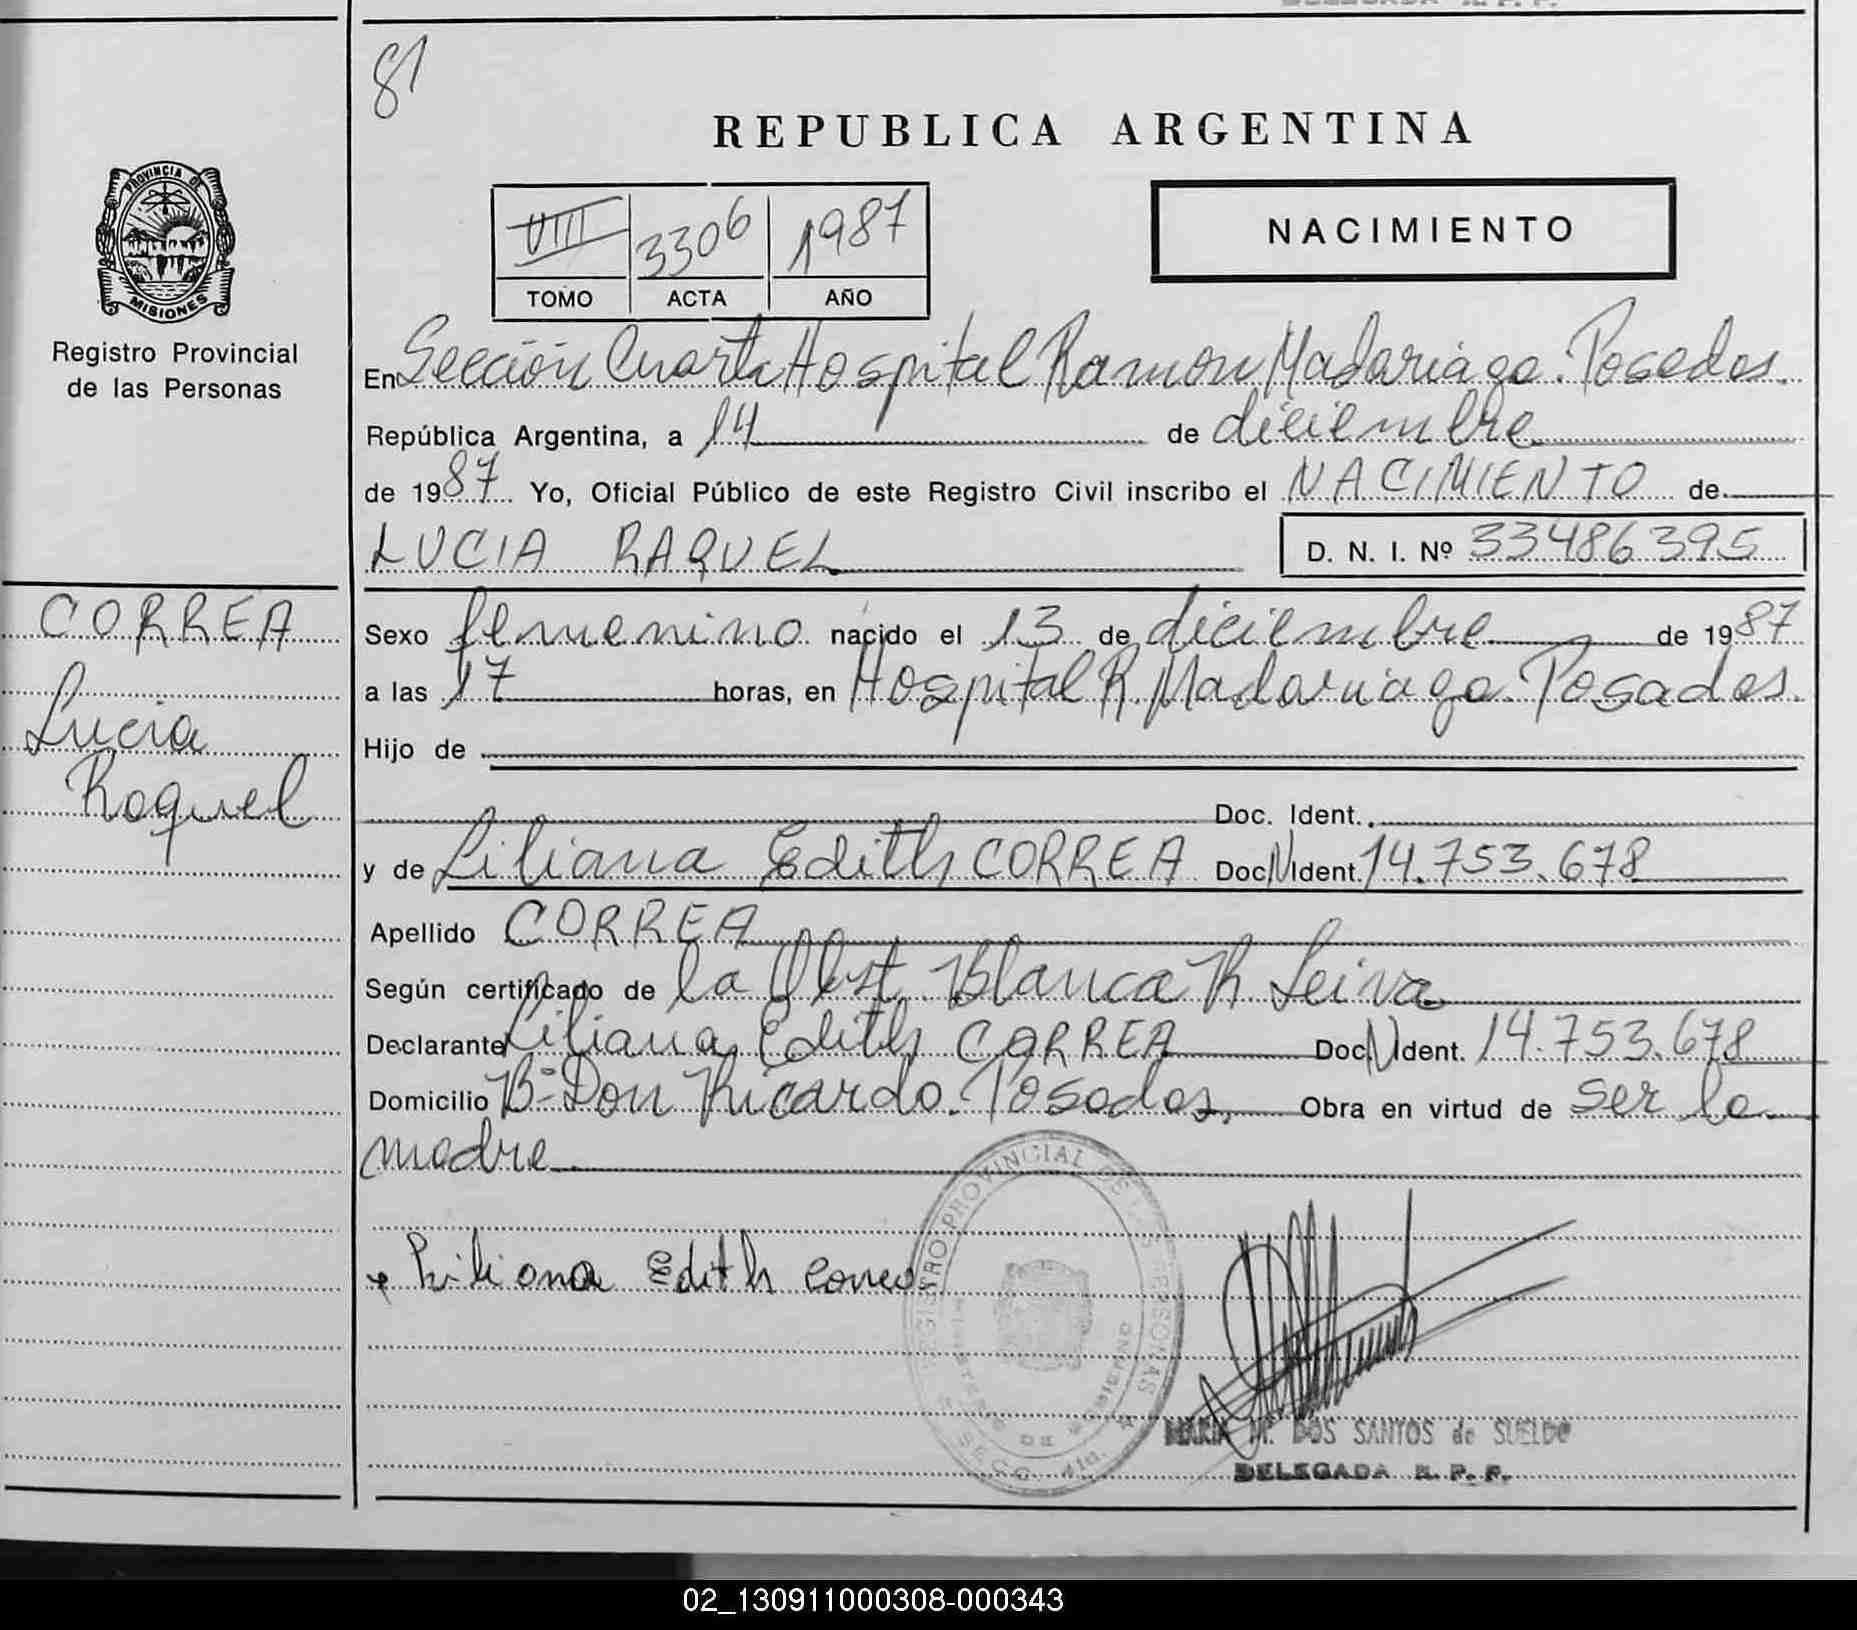 81
REPUBLICA ARGENTINA
PROVINCIA DE
MISIONES
Registro Provincial
de las Personas
VIII 3306 1987
TOMO ACTA AÑO
NACIMIENTO
En Sección Cuarta Hospital Ramon Madariaga. Posadas.
República Argentina, a 14 de diciembre
de 1987 Yo, Oficial Público de este Registro Civil inscribo el NACIMIENTO de
LUCIA RAQUEL D. N. I. Nº 33486395
CORREA
Lucia
Raquel
Sexo femenino nacido el 13 de diciembre de 1987
a las 17 horas, en Hospital R. Madariaga. Posadas.
Hijo de
Doc. Ident.
y de Liliana Edith CORREA Doc N Ident. 14.753.678
Apellido CORREA
Según certificado de la Obst. Blanca R Leiva
Declarante Liliana Edith CORREA Doc. N Ident. 14.753.678
Domicilio Bº Don Ricardo. Posadas. Obra en virtud de ser la
madre
Liliana Edith Correa
REGISTRO PROVINCIAL DE LAS PERSONAS
MINISTERIO DE GOBIERNO
SECC. 4ta.
MARIA M. DOS SANTOS de SUELDO
DELEGADA R. P. P.
02_130911000308-000343